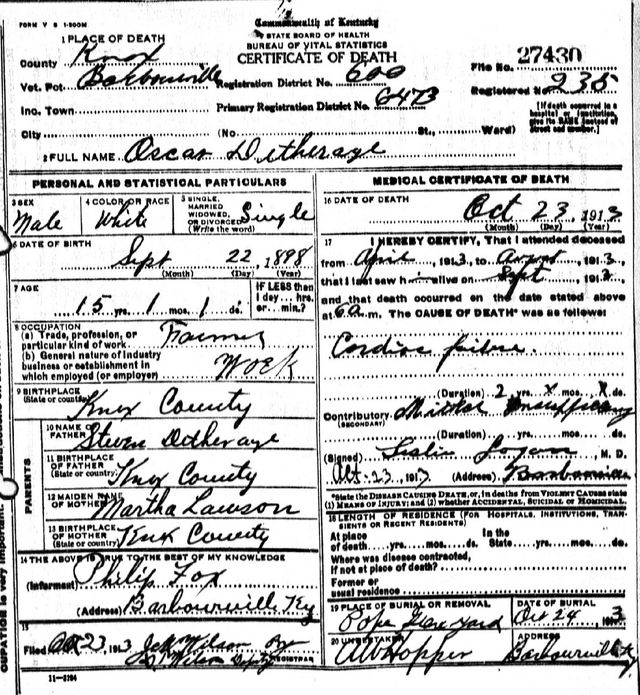 FORM V S 1-500M
Commonwealth of Kentucky
STATE BOARD OF HEALTH
BUREAU OF VITAL STATISTICS
CERTIFICATE OF DEATH
1 PLACE OF DEATH
County Knox
Vot. Pct. Barbourville
Inc. Town
City (No St., Ward)
Registration District No. 600
Primary Registration District No. 6473
File No. 27430
Registered No. 235
[If death occurred in a hospital or institution, give its NAME instead of street and number.]
2 FULL NAME Oscar Detherage
PERSONAL AND STATISTICAL PARTICULARS
3 SEX Male
4 COLOR OR RACE White
5 SINGLE, MARRIED WIDOWED, OR DIVORCED (Write the word) Single
6 DATE OF BIRTH
Sept 22, 1898
(Month) (Day) (Year)
7 AGE
15 yrs. 1 mos. 1 ds.
IF LESS than 1 day... hrs. or... min.?
8 OCCUPATION
(a) Trade, profession, or particular kind of work Farmer
(b) General nature of industry business or establishment in which employed (or employer) Work
9 BIRTHPLACE
(State or country) Knox County
PARENTS
10 NAME OF FATHER Steven Detherage
11 BIRTHPLACE OF FATHER
(State or country) Knox County
12 MAIDEN NAME OF MOTHER Martha Lawson
13 BIRTHPLACE OF MOTHER
(State or country) Knox County
14 THE ABOVE IS TRUE TO THE BEST OF MY KNOWLEDGE
(Informant) Philip Fox
(Address) Barbourville Ky
15
Filed Oct 23, 1913 Wilson
Wilson Deputy REGISTRAR
11-3184
MEDICAL CERTIFICATE OF DEATH
16 DATE OF DEATH
Oct 23, 1913
(Month) (Day) (Year)
17 I HEREBY CERTIFY, That I attended deceased
from April, 1913, to August, 1913,
that I last saw h alive on Sept, 1913,
and that death occurred on the date stated above
at 6 a.m. The CAUSE OF DEATH* was as follows:
Cardiac failure.
(Duration) 2 yrs. X mos. X ds.
Contributory Mitral Insufficiency
(SECONDARY)
(Duration) yrs. mos. ds.
(Signed) Leslie Logan, M. D.
Oct-23, 1913 (Address)
*State the DISEASE CAUSING DEATH, or, in deaths from VIOLENT CAUSES state (1) MEANS OF INJURY; and (2) whether ACCIDENTAL, SUICIDAL or HOMICIDAL.
18 LENGTH OF RESIDENCE (FOR HOSPITALS, INSTITUTIONS, TRANSIENTS OR RECENT RESIDENTS)
At place of death yrs. mos. ds. In the State yrs. mos. ds.
Where was disease contracted, if not at place of death?
Former or usual residence
19 PLACE OF BURIAL OR REMOVAL
Pope Grave Yard
DATE OF BURIAL
Oct 24, 1913
20 UNDERTAKER
AW Hopper
ADDRESS
Barbourville Ky
CUPATION is very important.